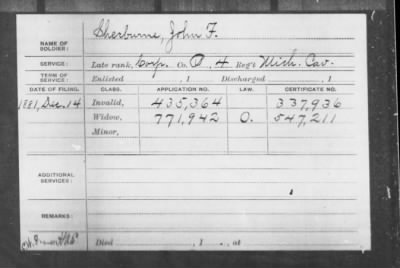 NAME OF SOLDIER: Sherburne, John F.
SERVICE: Late rank, Corp. Co. 4 Reg't Mich. Cav.
TERM OF SERVICE: Enlisted , 1 Discharged , 1
DATE OF FILING. CLASS. APPLICATION NO. LAW. CERTIFICATE NO.
1881, Dec. 14 Invalid, 435,364 337,936
Widow, 771,942 O. 547,211
Minor,
ADDITIONAL SERVICES:
REMARKS:
Died , 1 , at